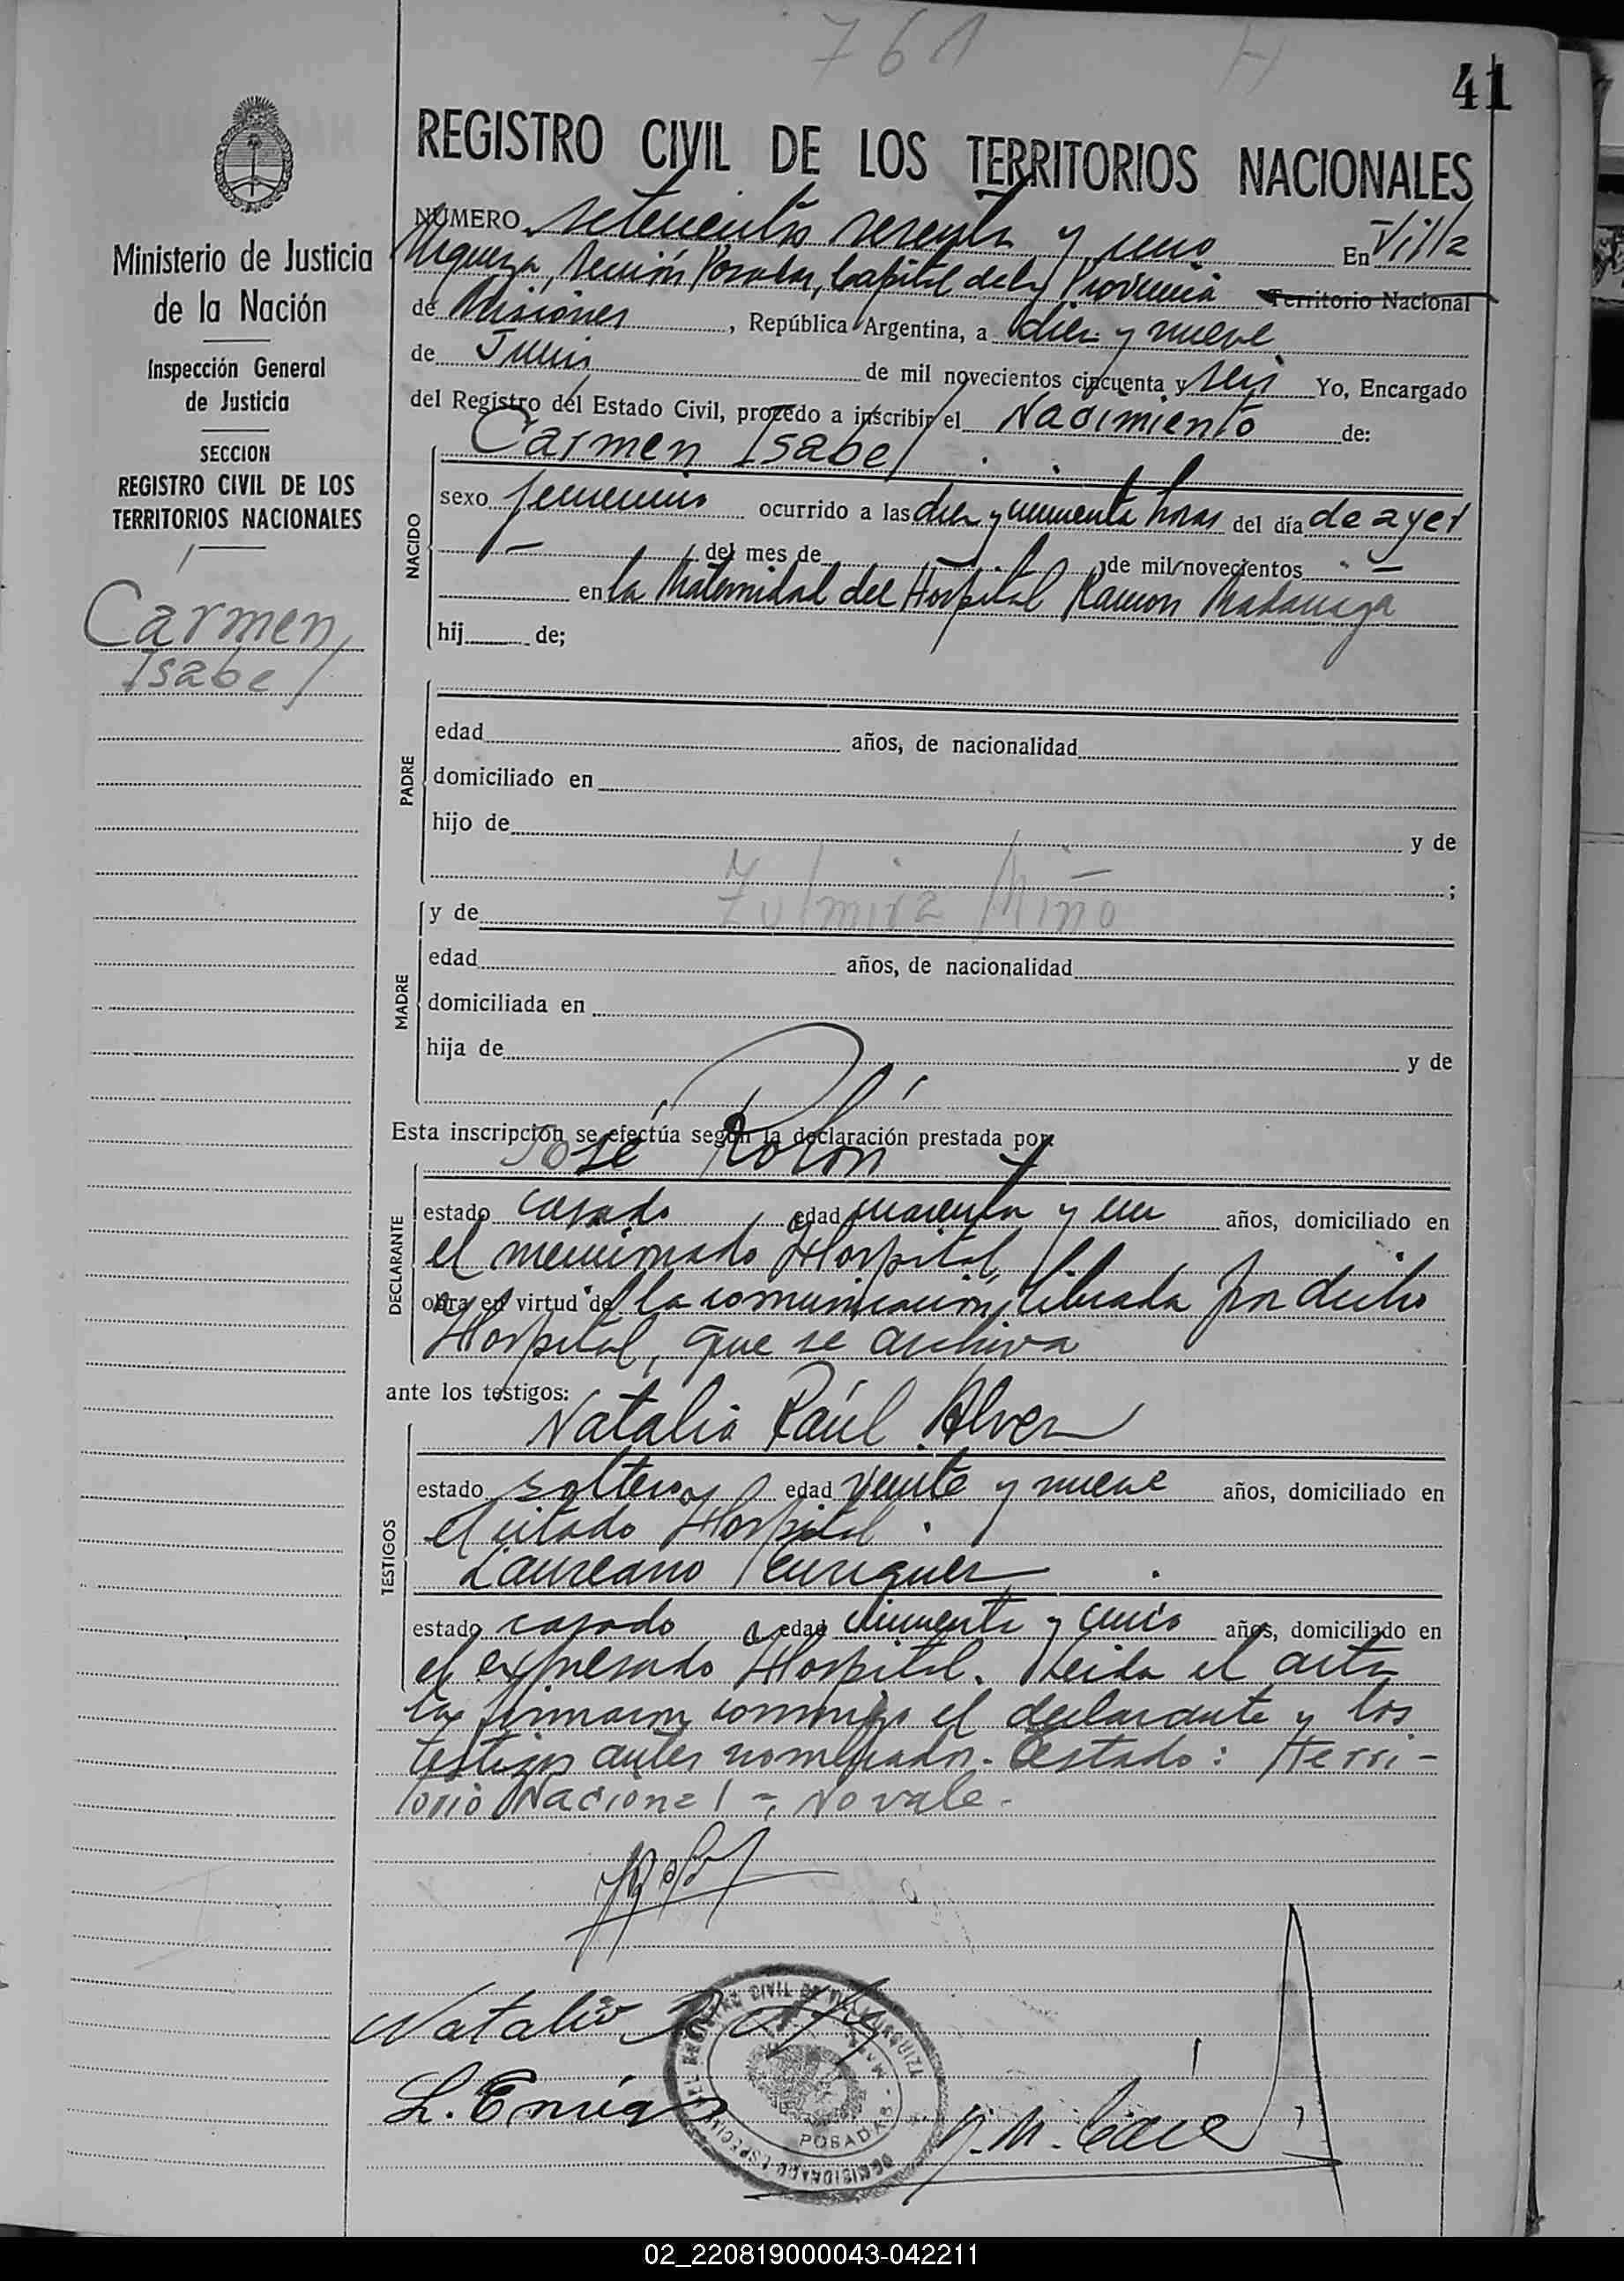 761 H
41
REGISTRO CIVIL DE LOS TERRITORIOS NACIONALES
Ministerio de Justicia
de la Nación
Inspección General
de Justicia
SECCION
REGISTRO CIVIL DE LOS
TERRITORIOS NACIONALES
Carmen
Isabel
NÚMERO setecientos sesenta y uno En Villa
Urquiza, Sección Posadas, Capital de la Provincia Territorio Nacional
de Misiones, República Argentina, a diez y nueve
de Junio de mil novecientos cincuenta y seis Yo, Encargado
del Registro del Estado Civil, procedo a inscribir el Nacimiento de:
Carmen Isabel
NACIDO
sexo femenino ocurrido a las diez y cincuenta horas del día de ayer
— del mes de de mil novecientos —
en la Maternidad del Hospital Ramon Madariaga
hij de;
PADRE
edad años, de nacionalidad
domiciliado en
hijo de y de
;
MADRE
y de Zulmira Miño
edad años, de nacionalidad
domiciliada en
hija de y de
Esta inscripción se efectúa según la declaración prestada por:
DECLARANTE
José Rolón
estado casado edad cuarenta y un años, domiciliado en
el mencionado Hospital
obra en virtud de la comunicación librada por dicho
Hospital, que se archiva
ante los testigos:
TESTIGOS
Natalio Raúl Alvez
estado soltero edad veinte y nueve años, domiciliado en
el citado Hospital.
Laureano Enriquez
estado casado edad cincuenta y cinco años, domiciliado en
el expresado Hospital. Leida el acta
la firmaron conmigo el declarante y los
testigos antes nombrados. Testado: Terri-
torio Nacional -, No vale.
Natalio R
L. Enriq
REGISTRO CIVIL DE VILLA URQUIZA
POSADAS
02_220819000043-042211